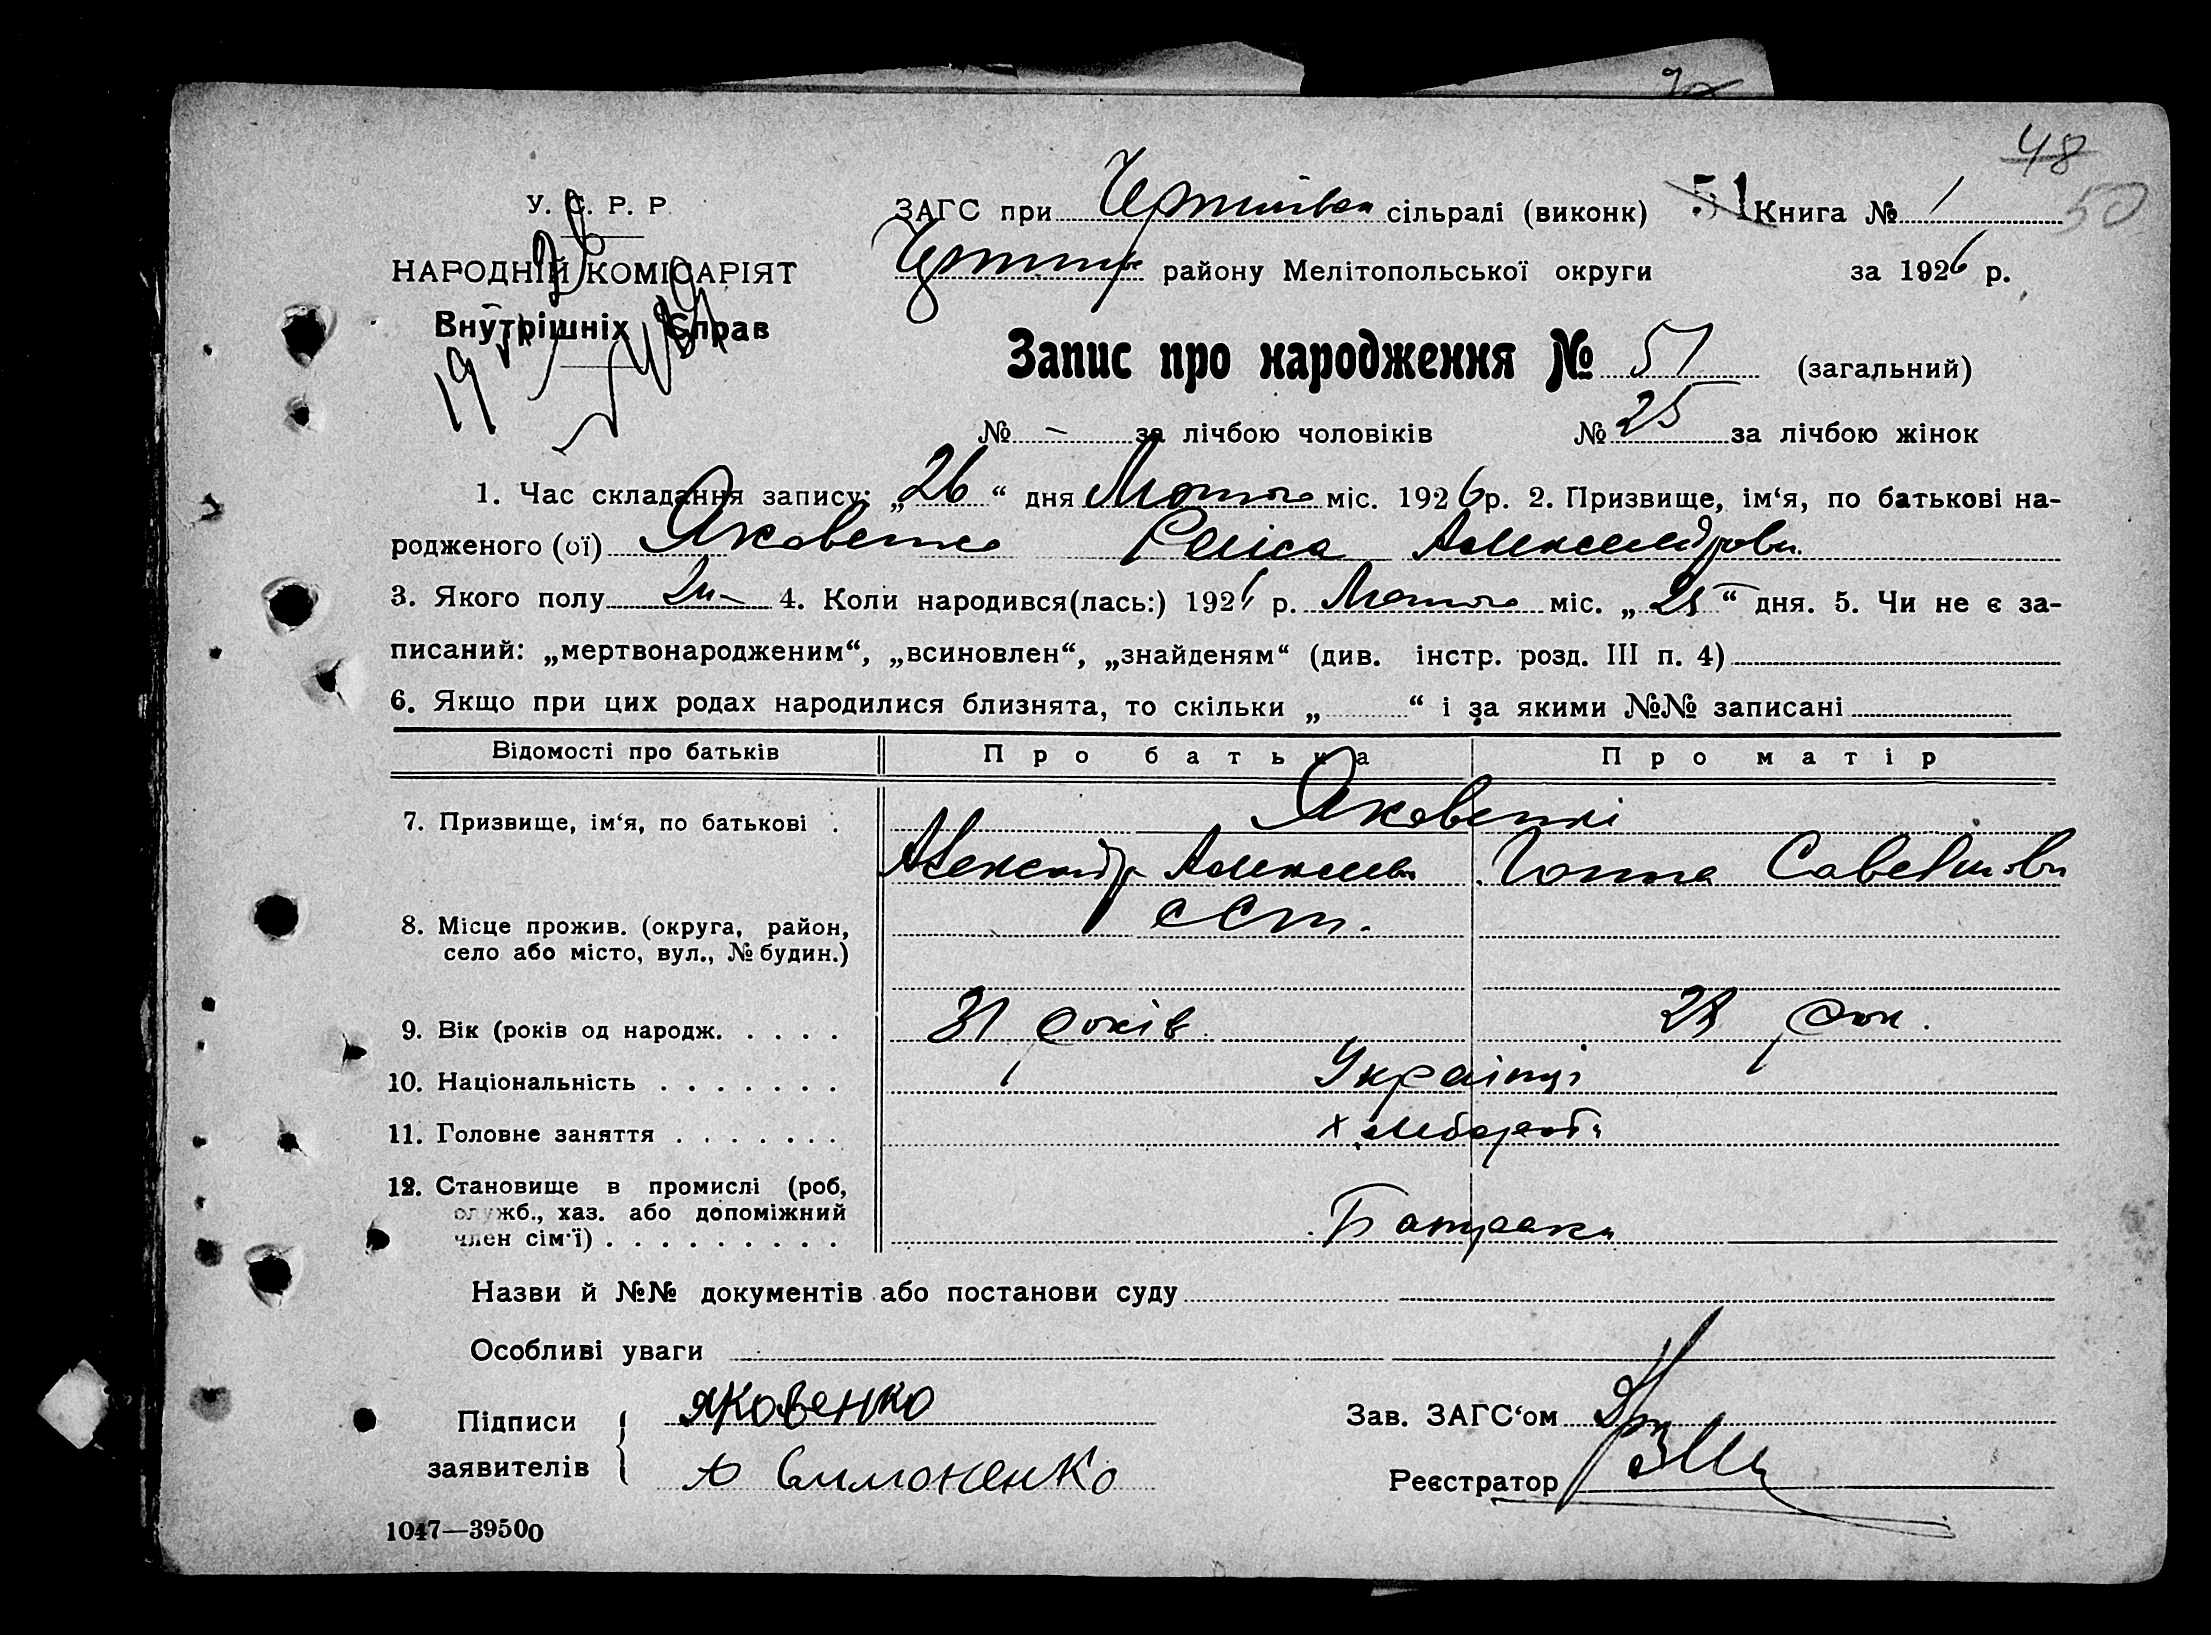 48
50
У. С. Р. Р.
НАРОДНІЙ КОМІСАРІЯТ
Внутрішніх Справ
ЗАГС при сільраді (виконк) 51 Книга № 1
району Мелітопольської округи за 1926 р.
Запис про народження № 51 (загальний)
№ – за лічбою чоловіків № 25 за лічбою жінок
1. Час складання запису: „26“ дня Лютого міс. 1926 р. 2. Призвище, ім‘я, по батькові на-
родженого (ої) Яковенко Раїса Александровн
3. Якого полу 4. Коли народився(лась:) 1926 р. Лютого міс. „25“ дня. 5. Чи не є за-
писаний: „мертвонародженим“, „всиновлен“, „знайденям“ (див. інстр. розд. III п. 4)
6. Якщо при цих родах народилися близнята, то скільки „ “ і за якими №№ записані
Відомості про батьків Про батька Про матір
7. Призвище, ім‘я, по батькові . Яковенкі
Александр Алексеев Ганна Саветиовн
8. Місце прожив. (округа, район,
село або місто, вул., № будин.)
9. Вік (років од народж. . . . . 31 років рок.
10. Національність . . . . . . . Українці
11. Головне заняття . . . . . . . хлебороби
12. Становище в промислі (роб,
служб., хаз. або допоміжний
член сім‘ї) . . . . . . . . . Батраки
Назви й №№ документів або постанови суду
Особливі уваги
Підписи Яковенко Зав. ЗАГС‘ом
заявителів Симоненко Реєстратор
1047—39500